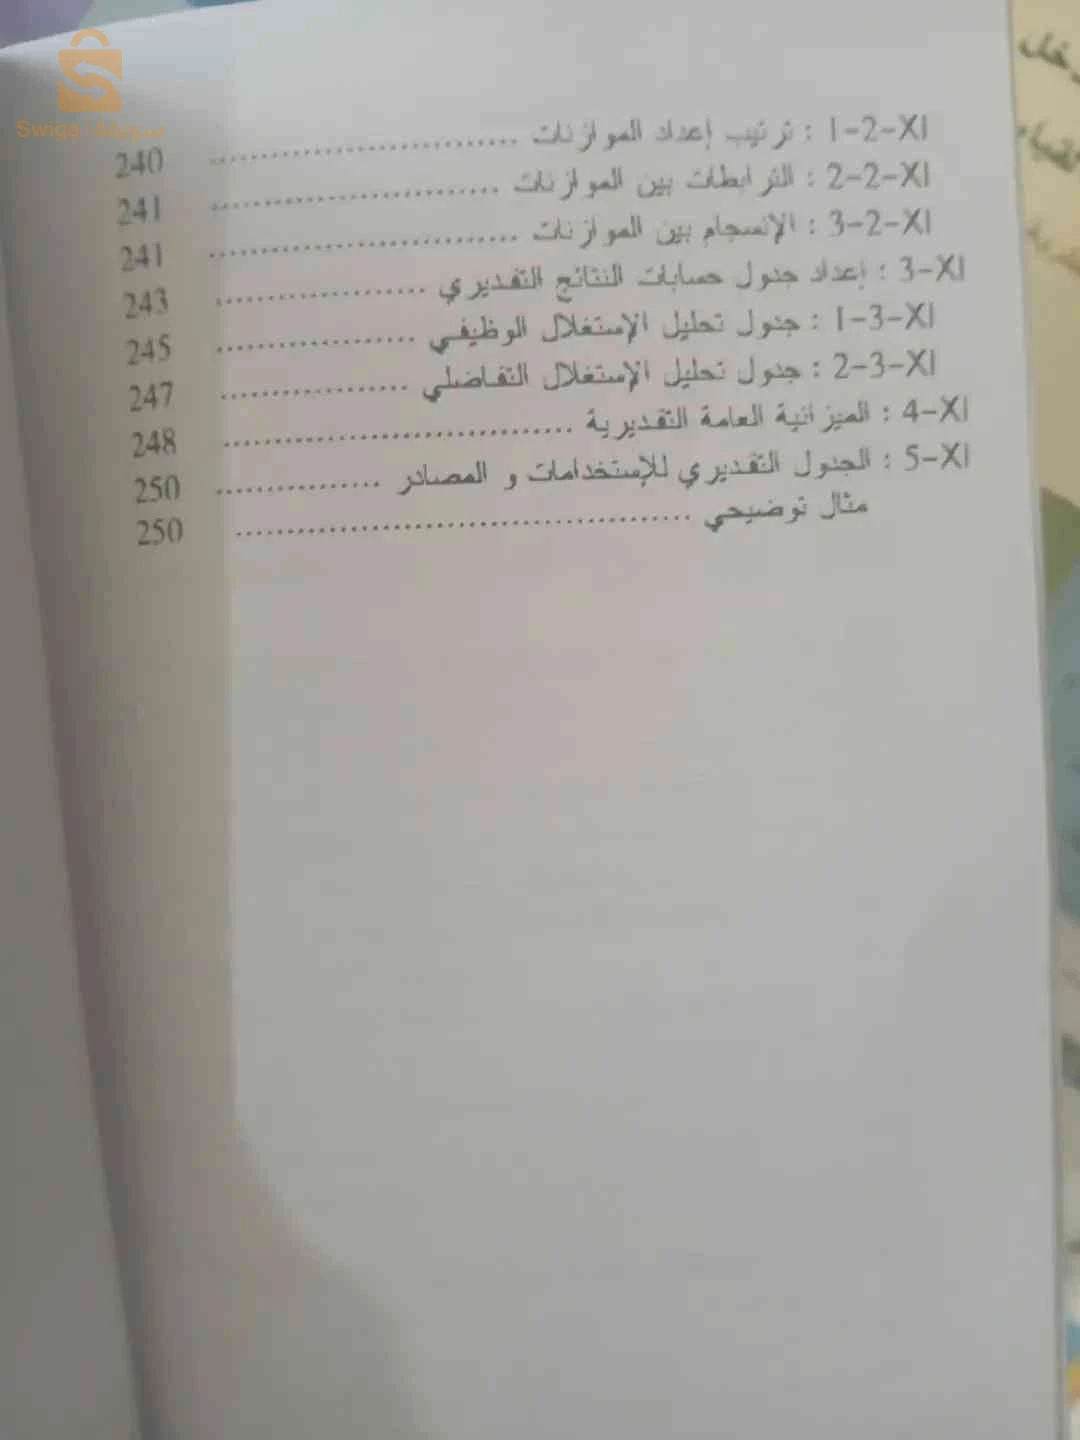 Swiqa سويقة
1-2-XI : ترتيب إعداد الموازنات .............................. 240
2-2-XI : الترابطات بين الموازنات .............................. 241
3-2-XI : الإنسجام بين الموازنات .............................. 241
3-XI : إعداد جدول حسابات النتائج التقديري .................... 243
1-3-XI : جدول تحليل الإستغلال الوظيفي .................... 245
2-3-XI : جدول تحليل الإستغلال التفاضلي .................... 247
4-XI : الميزانية العامة التقديرية .............................. 248
5-XI : الجدول التقديري للإستخدامات و المصادر ................ 250
مثال توضيحي ........................................ 250